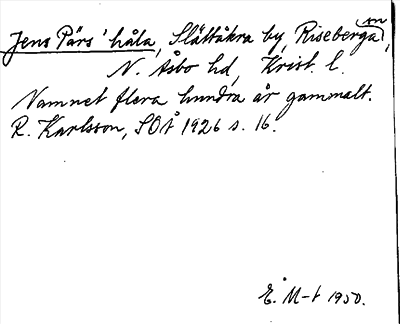 Jens Pärs' håla, Slättåkra by, Riseberga sn,
N. Åsbo hd, Krist. l.
Namnet flera hundra år gammalt.
R. Karlsson, SOÅ 1926 s. 16.
E. M-t 1950.